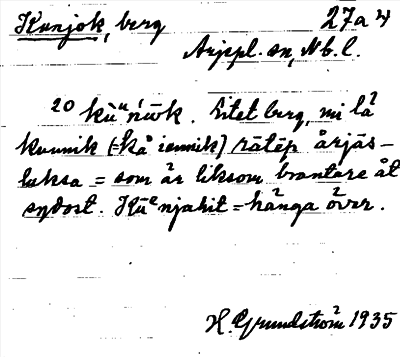 Kunjok, berg 27a 4
Arjepl. sn, Nb. l.
20 kūːńùok. Litet berg, mi lå
kuunik (=kå iennik) rātēp årjās-
luksa = som är liksom brantare åt
sydost. Kūᵉnjahit = hänga över.
H. Grundström 1935